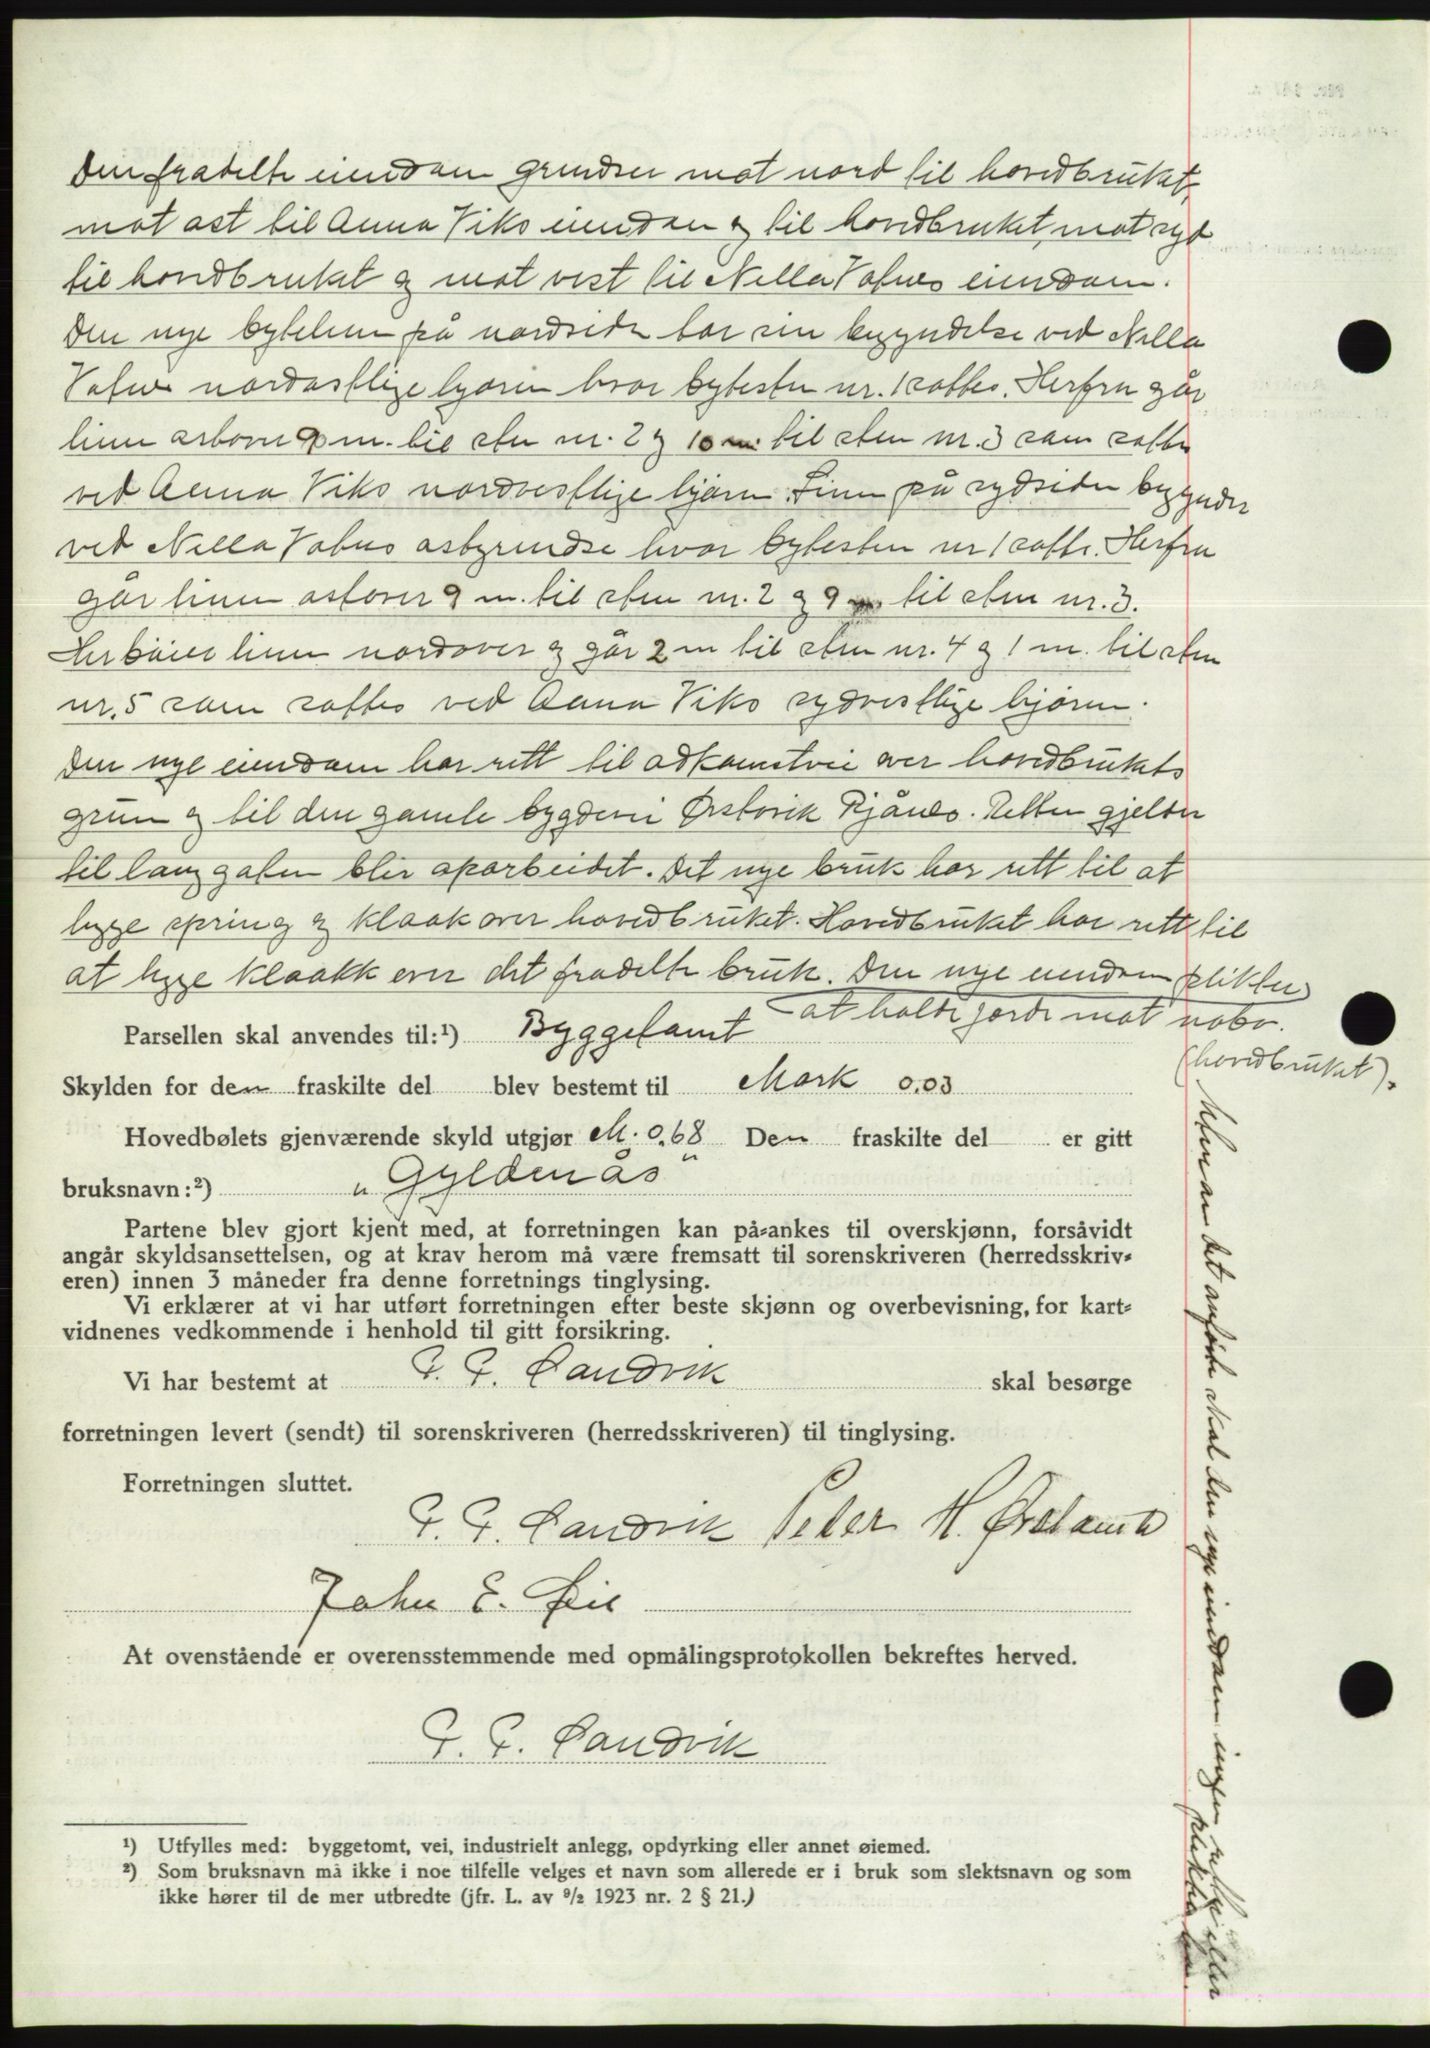 Den fradelte eiendom grendser mot nord til hovedbruket,
mot øst til Anna Viks eiendom og til hovedbruket, mot syd
til hovedbruket og mot vest til Nella Vatnes eiendom.
Den nye bytelinn på nordsiden tar sin begyndelse ved Nella
Vatnes nordøstlige hjørne hvor bytesten nr. 1 sattes. Herfra går
linn østover 9 m. til sten nr. 2 og 10 m. til sten nr. 3 som sattes
ved Anna Viks nordvestlige hjørn. Linn på sydsiden begynder
ved Nella Vatnes østgrendse hvor bytesten nr 1 sattes. Herfra
går linnen østover 9 m. til sten nr. 2 og 9 m. til sten nr. 3.
Her bøier linn nordover og går 2 m til sten nr. 4 og 1 m. til sten
nr. 5 som sattes ved Anna Viks sydvestlige hjørne.
Den nye eiendom har rett til adkomstvei over hovedbrukets
grun og til den gamle bygdevei Ørstavik Rjånes. Retten gjelder
til langgaten blir oparbeidet. Det nye bruk har rett til at
legge spring og kloak over hovedbruket. Hovedbruket har rett til
at legge kloakk over det fradelte bruk. Den nye eiendom plikter
at holde gjerde mot nabo.
(hovedbruket).
Parsellen skal anvendes til:¹) Byggetomt
Skylden for den fraskilte del blev bestemt til Mark 0.03
Hovedbølets gjenværende skyld utgjør M. 0.68 Den fraskilte del er gitt
bruksnavn:²) „Gyldenås"
Partene blev gjort kjent med, at forretningen kan på-ankes til overskjønn, forsåvidt
angår skyldsansettelsen, og at krav herom må være fremsatt til sorenskriveren (herredsskriv-
eren) innen 3 måneder fra denne forretnings tinglysing.
Vi erklærer at vi har utført forretningen efter beste skjønn og overbevisning, for kart-
vidnenes vedkommende i henhold til gitt forsikring.
Vi har bestemt at P. P. Sandvik skal besørge
forretningen levert (sendt) til sorenskriveren (herredsskriveren) til tinglysing.
Forretningen sluttet.
P. P. Sandvik Peter H. Ørstavik
John E. Øie
At ovenstående er overensstemmende med opmålingsprotokollen bekreftes herved.
P. P. Sandvik
¹) Utfylles med: byggetomt, vei, industrielt anlegg, opdyrking eller annet øiemed.
²) Som bruksnavn må ikke i noe tilfelle velges et navn som allerede er i bruk som slektsnavn og som
ikke hører til de mer utbredte (jfr. L. av 9/2 1923 nr. 2 § 21.)
det anførte skal den nye eiendom ingen rettig eller
plikter ha.